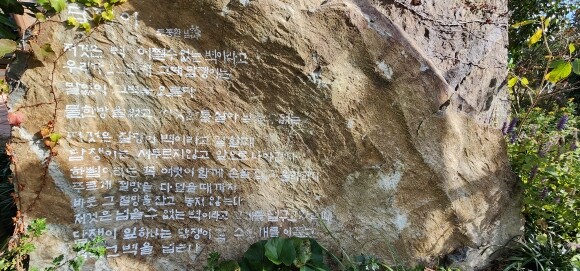 도종환
저것은 벽 어쩔수없는 벽이라고
우리가 그때 담쟁이는
말없이 그 벽을 오른다
물한방울없고
저것은 절망의 벽이라고 말할때
담쟁이는 서두르지않고 앞으로 나아간다
한뼘이라도 꼭 여럿이 함께 손을 잡고 올라간다
푸르게 절망을 다 덮을때까지
바로 그 절망을 잡고 놓지 않는다
저것은 넘을수 없는 벽이라고 고개를
담쟁이 잎하나는 담쟁이 잎 수 개를 이끌고
그 벽을 넘는다